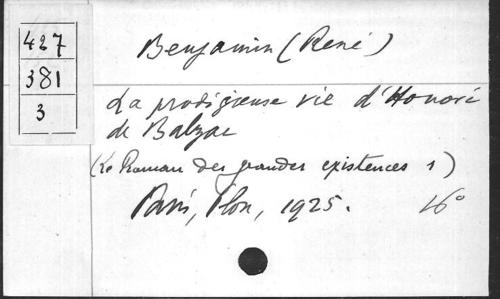 427
381
3
Benjamin (René)
La prodigieuse vie d'Honoré
de Balzac
(Le Roman des grandes existences 1)
Paris, Plon, 1925. 16°